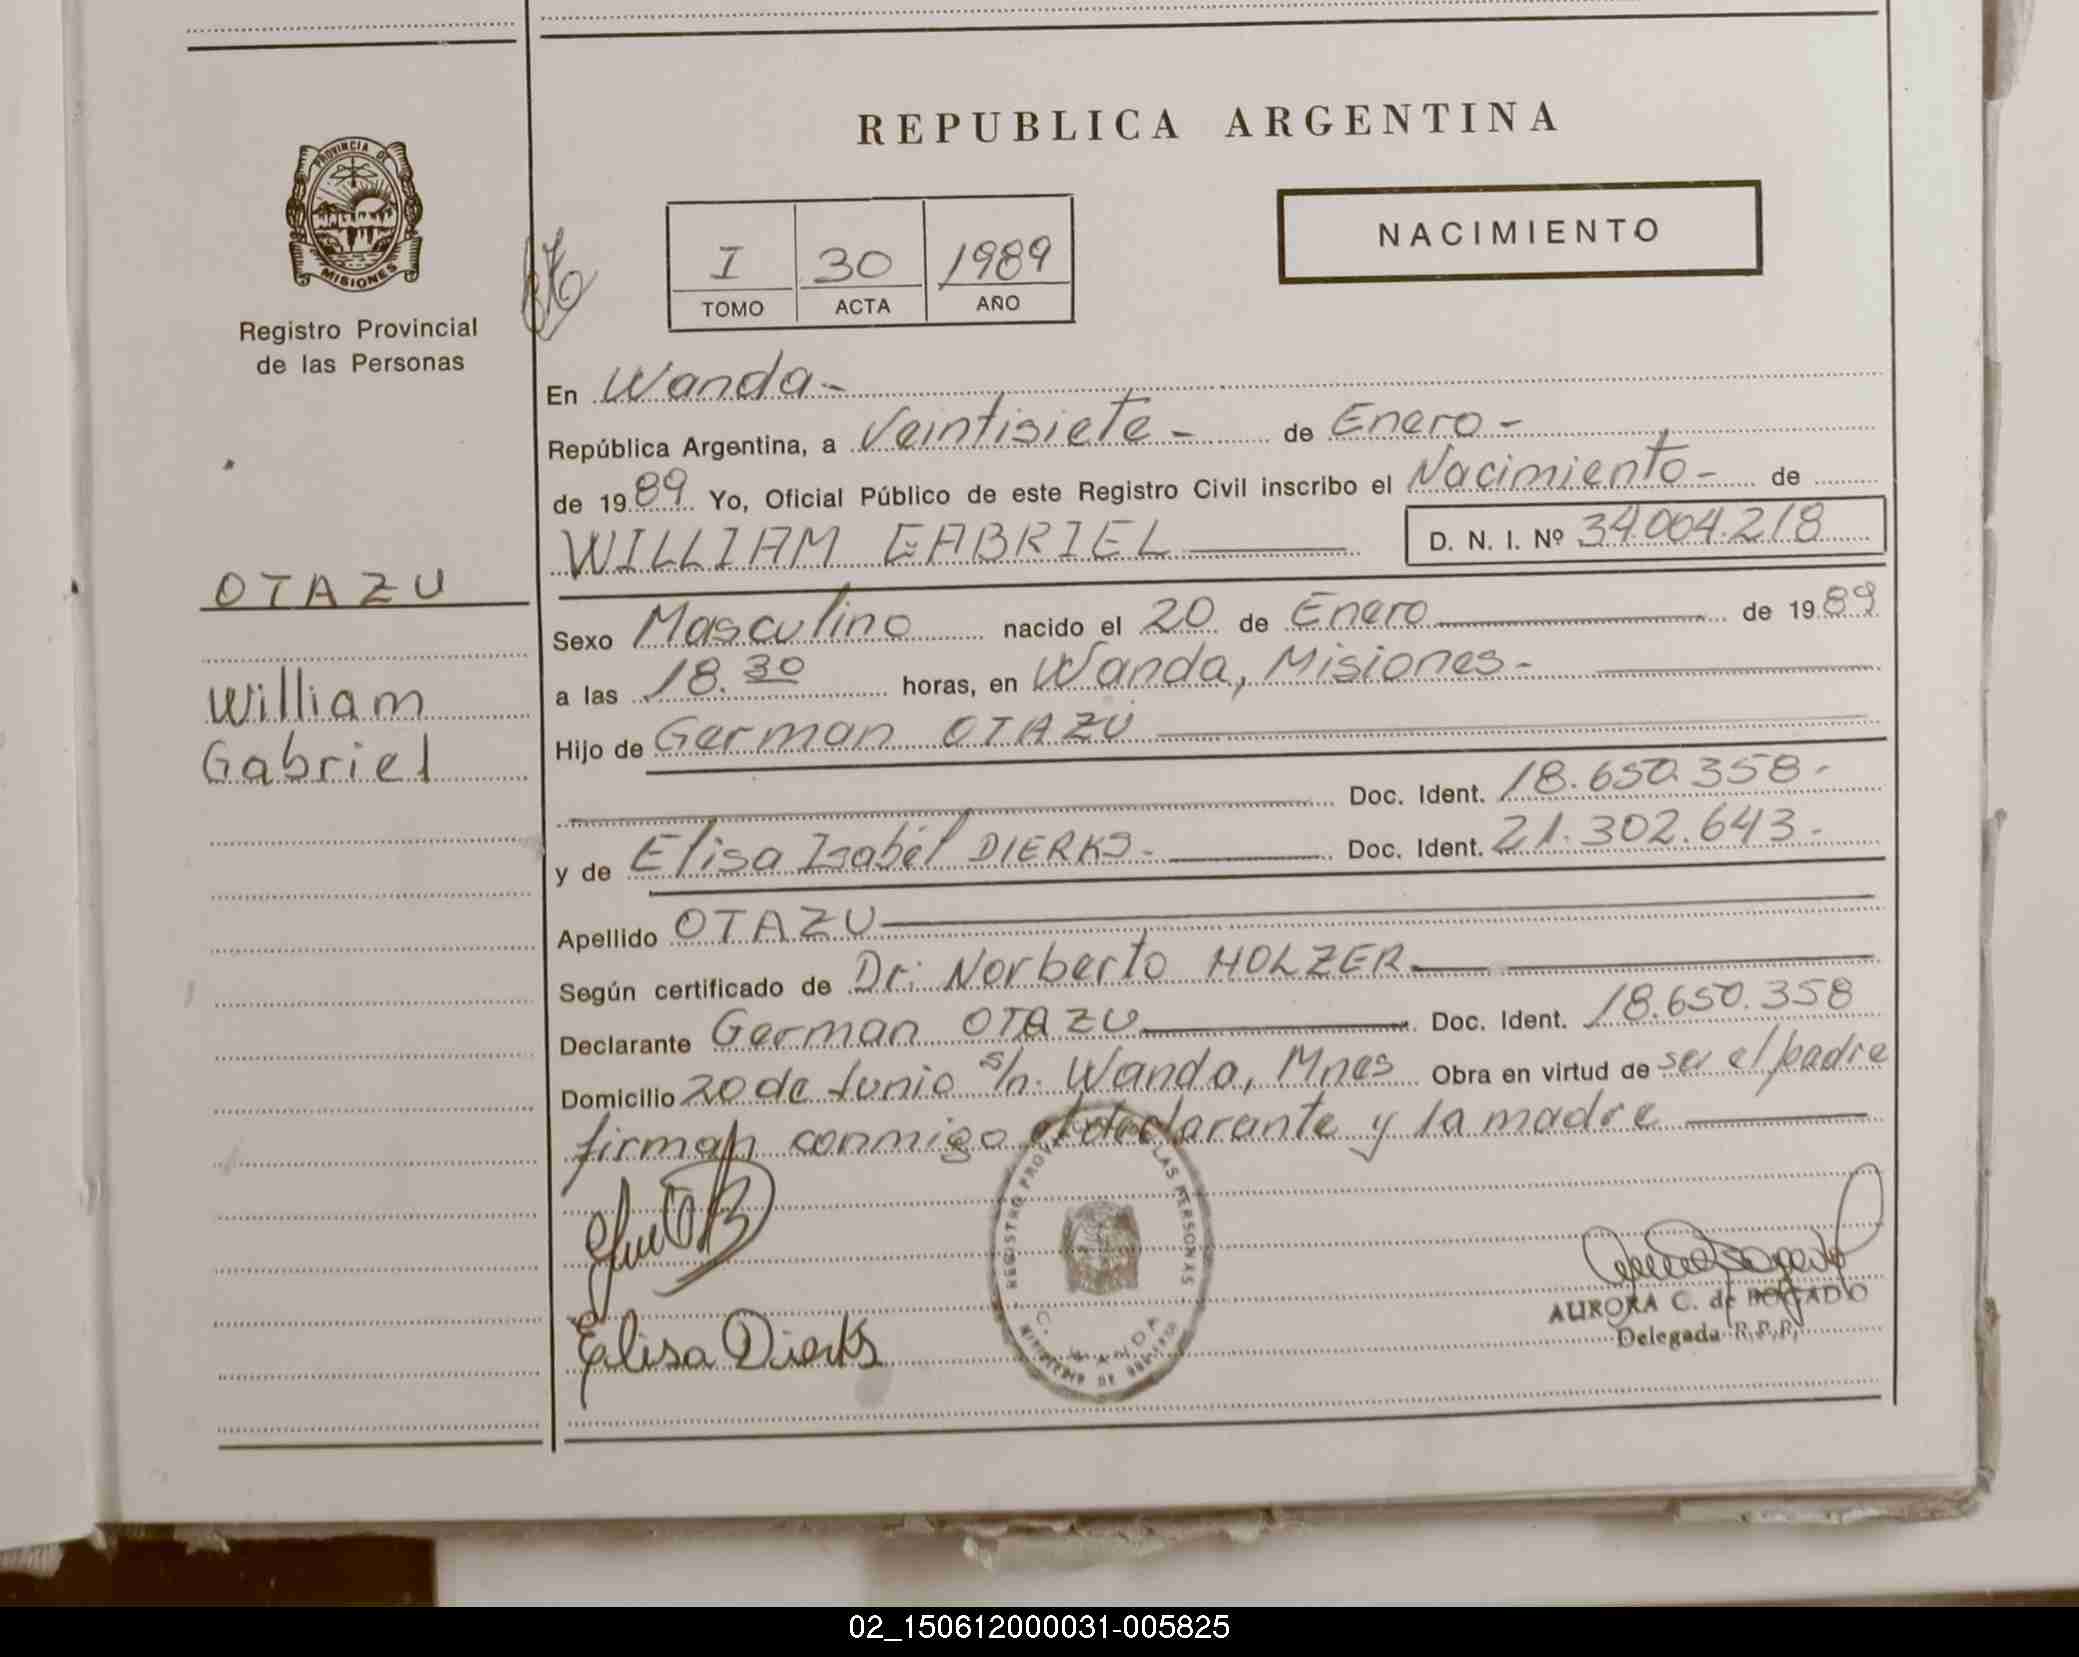 PROVINCIA DE
MISIONES
Registro Provincial
de las Personas
OTAZU
William
Gabriel
REPUBLICA ARGENTINA
I 30 1989
TOMO ACTA AÑO
NACIMIENTO
En Wanda-
República Argentina, a Veintisiete - de Enero -
de 1989 Yo, Oficial Público de este Registro Civil inscribo el Nacimiento - de
WILLIAM GABRIEL D. N. I. Nº 34.004.218
Sexo Masculino nacido el 20 de Enero de 1989
a las 18.30 horas, en Wanda, Misiones-
Hijo de German OTAZU
Doc. Ident. 18.650.358-
y de Elisa Isabel DIERKS- Doc. Ident. 21.302.643-
Apellido OTAZU
Según certificado de Dr: Norberto HOLZER
Declarante German OTAZU Doc. Ident. 18.650.358
Domicilio 20 de Junio s/n. Wanda, Mnes Obra en virtud de ser el padre
firman conmigo el declarante y la madre
REGISTRO PROV LAS PERSONAS
WANDA
MINISTERIO DE GOBIERNO
Elisa Dierks
AURORA C. de BOGADO
Delegada R.P.P.
02_150612000031-005825